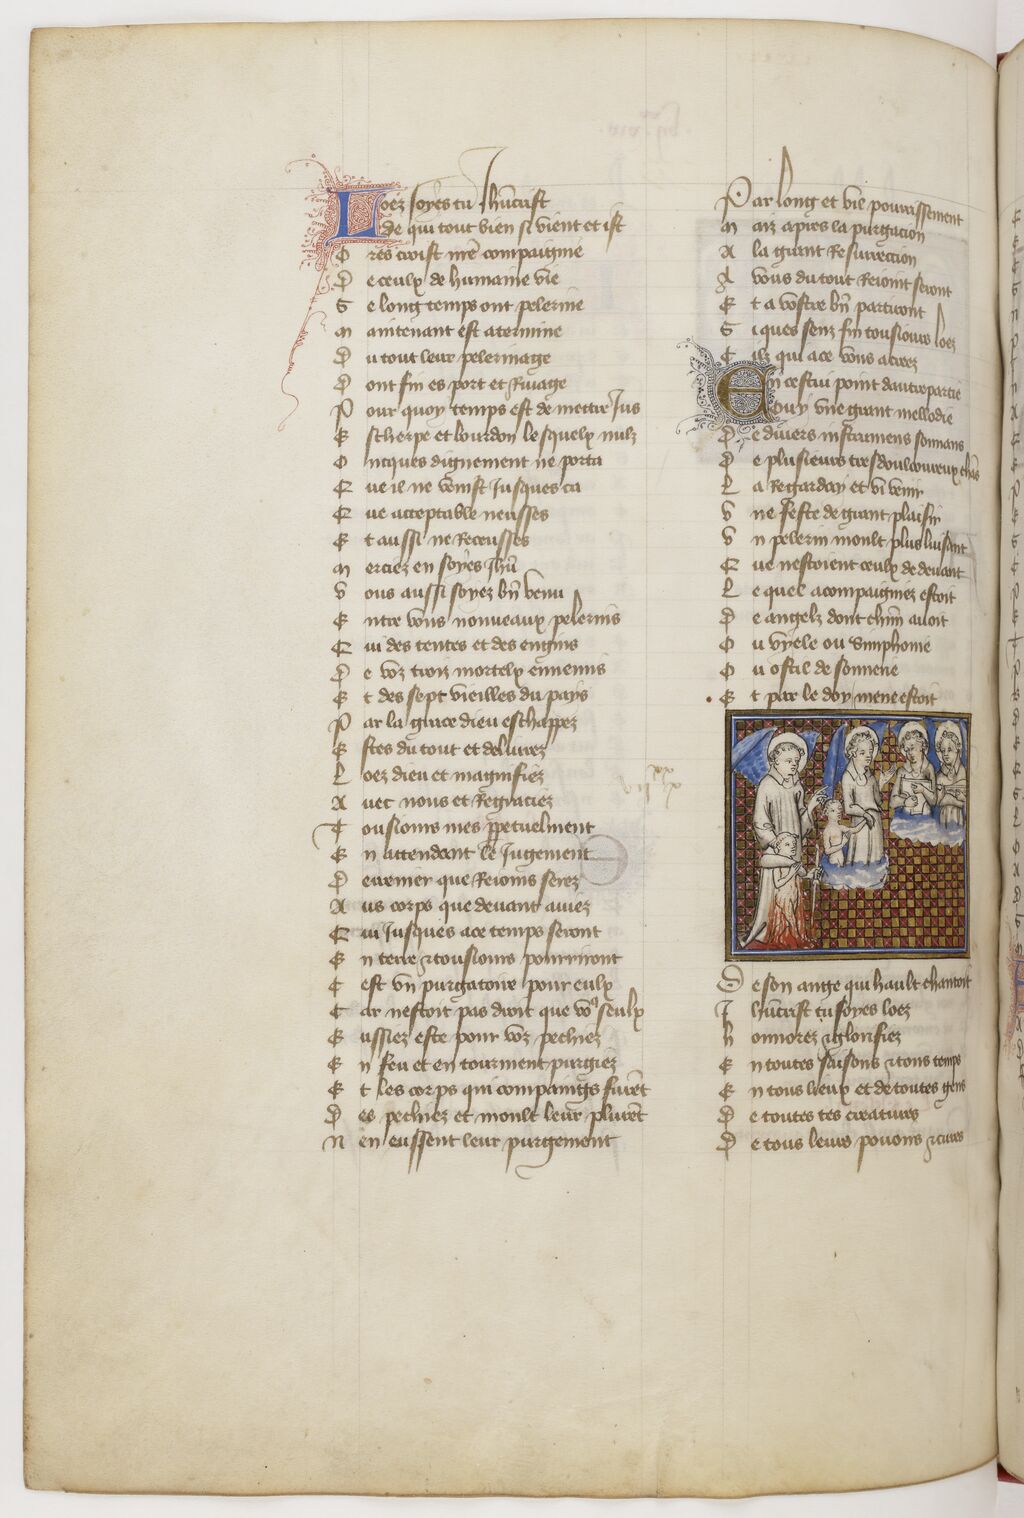 Loez soyes tu Jhucrist
de qui tout bien si vient et ist
Ores croist nre compaignie
De ceulx de humaine vie
Se long temps ont pelerine
Maintenant est atermine
Du tout leur pelerinage
Dont fin es port et Rivage
Pour quoy temps est de mettre Jus
Escherpe et bourdon lesquelx nulz
Oncques dignement ne porta
Que il ne venist Jusques ca
Que acceptable neusses
Et aussi ne Receusses
Merciez en soyes Jhu
Vous aussi soyez bn venu
Entre vous nouveaux pelerins
Qui des tentes et des engins
De voz trois mortelx ennemis
Et des sept vieilles du pays
Par la grace dieu eschappez
Estes du tout et delivrez
Loez dieu et magnifiez
Avec nous et Regraciez
Tousiours mes ppetuelment
En attendant le Jugement
Derrenier que Reioins serez
Aus corps que devant aviez
Qui Jusques a ce temps seront
En terre & tousiours pourriront
Cest un purgatoire pour eulx
Car nestoit pas droit que vo9 seulx
Eussiez este pour voz pechiez
En feu et en tourment purgiez
Et les corps qui compaings furet
Des pechiez et moult leur pluret
Nen eussent leur purgement
Par long et vie pourrissement
Maiz apres la purgacion
A la grant Resurreccion
A vous du tout Reioint seront
Et a vostre bn partiront
Si ques senz fin tousiours loez
Cilz qui a ce vous a creez
En cestui point dautre partie
Jouy une grant mellodie
De divers instrumens sonnans
De plusieurs tres doulcoureux chas
La Regarday et vi venir
Une feste de grant plaisir
Un pelerin moult plus luisant
Que nestoient ceulx de devant
Le quel acompaigniez estoit
De angelz dont chun avoit
Ou vyele ou simphonie
Ou ostil de sonnerie
Et par le doy mene estoit
De son ange qui hault chantoit
Jhucrist tu soyes loez
Honnorez & glorifiez
En toutes saisons & tous temps
En tous lieux et de toutes gens
De toutes tes creatures
De tous leurs povoirs & cures